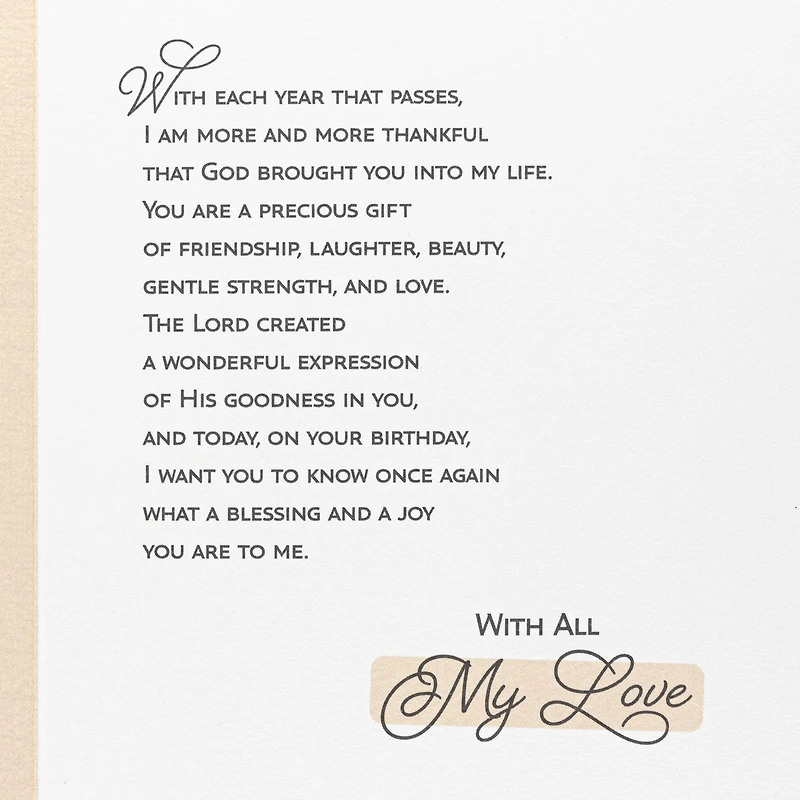 With each year that passes,
I am more and more thankful
that God brought you into my life.
You are a precious gift
of friendship, laughter, beauty,
gentle strength, and love.
The Lord created
a wonderful expression
of His goodness in you,
and today, on your birthday,
I want you to know once again
what a blessing and a joy
you are to me.
With All
My Love